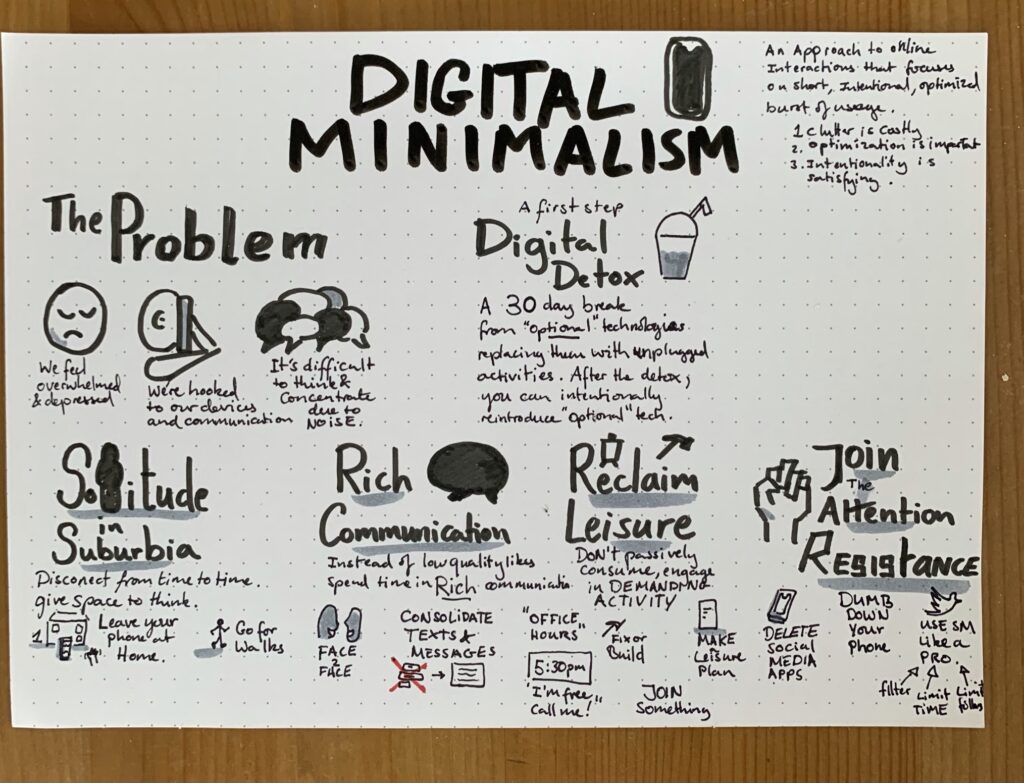 DIGITAL
MINIMALISM
An Approach to online
Interactions that focuses
on short, Intentional, optimized
burst of usage.
1 clutter is costly
2. optimization is important
3. Intentionality is
satisfying.
The Problem
We feel
overwhelmed
& depressed
We're hooked
to our devices
and communication
It's difficult
to think &
Concentrate
due to
NOISE.
A first step
Digital
Detox
A 30 day break
from "optional" technologies
replacing them with unplugged
activities. After the detox,
you can intentionally
reintroduce "optional" tech.
Solitude
in
Suburbia
Disconect from time to time.
give space to think.
1 Leave your
phone at
Home.
Go for
Walks
Rich
Communication
Instead of low quality likes
spend time in Rich communication
FACE
2
FACE
CONSOLIDATE
TEXTS &
MESSAGES
"OFFICE"
HOURS
5:30pm
"I'm free,
call me!"
Reclaim
Leisure
DON'T passively
consume, engage
in DEMANDING
ACTIVITY
Fix or
Build
JOIN
Something
MAKE
a Leisure
Plan
Join
The
Attention
RESISTANCE
DELETE
Social
MEDIA
APPS
DUMB
DOWN
Your
phone
USE SM
Like a
PRO.
filter
Limit
TIME
Limit